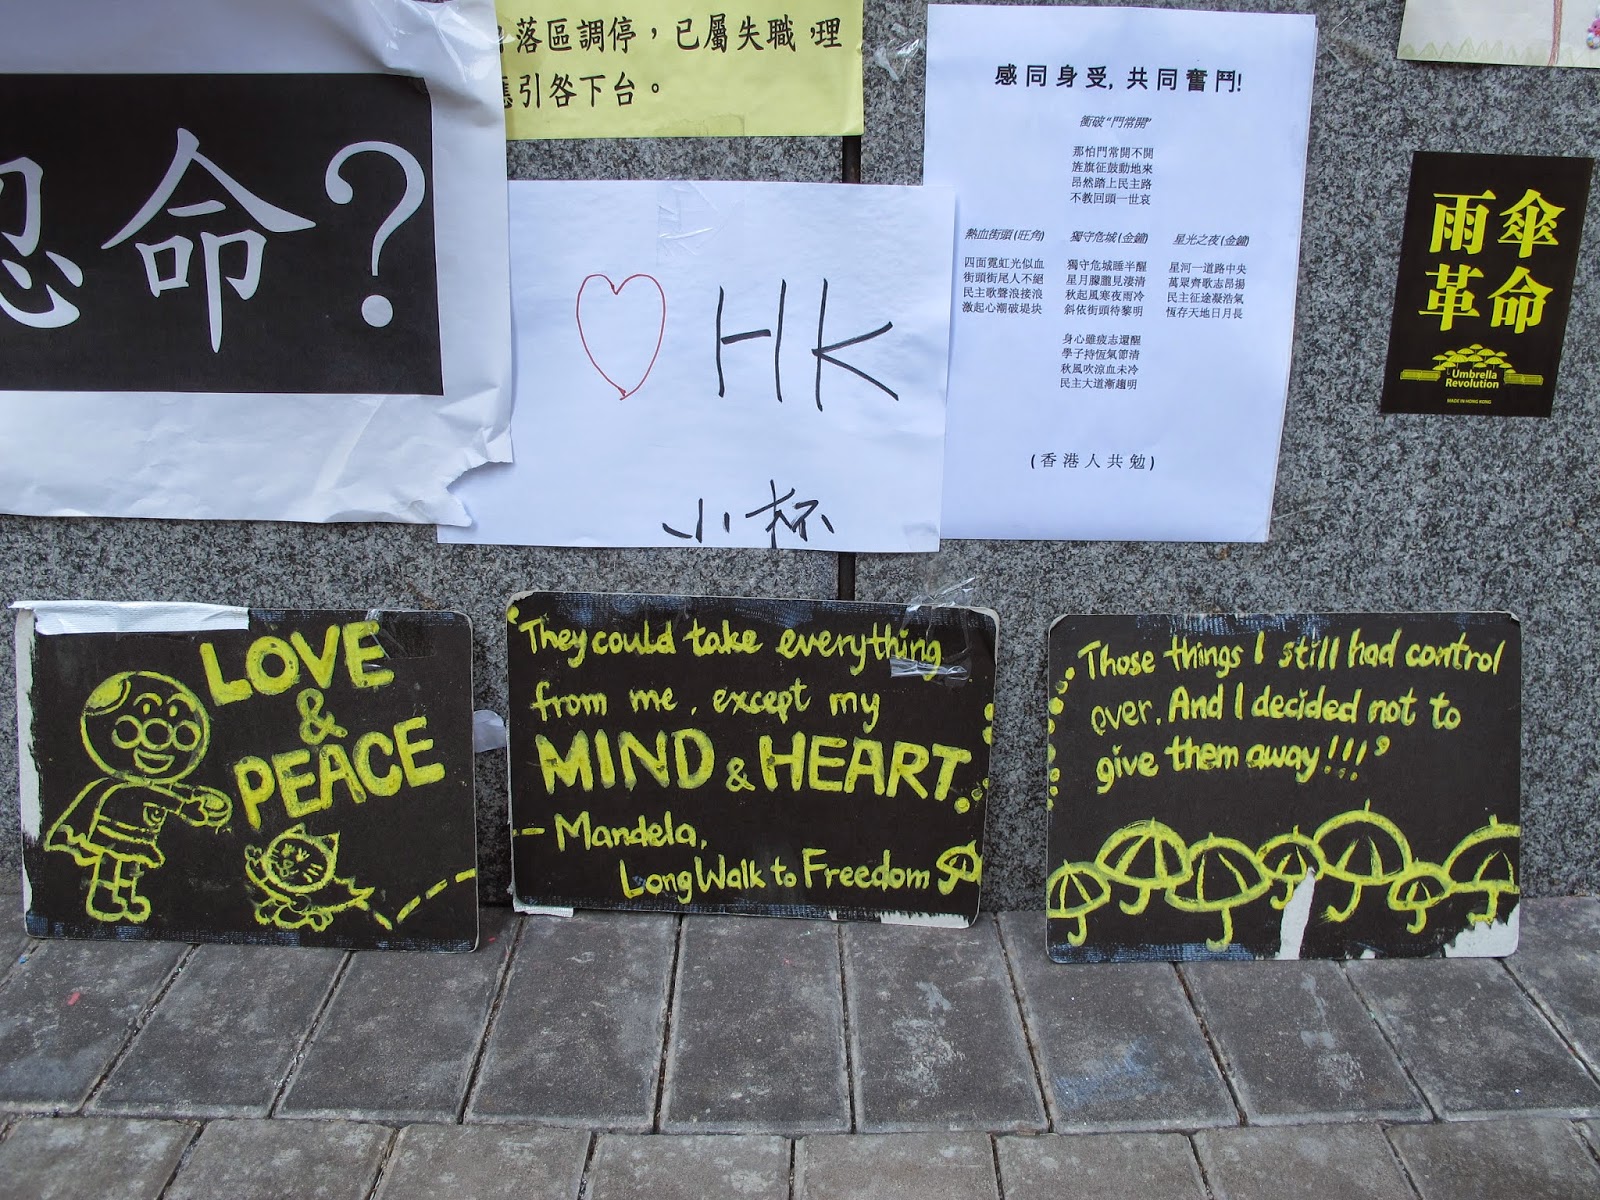 落區調停，已屬失職，理
應引咎下台。
忍命？
♡ HK
小杯
感同身受, 共同奮鬥!
衝破“門常開”
那怕門常開不開
旌旗征鼓動地來
昂然踏上民主路
不教回頭一世哀
熱血街頭(旺角)
四面霓虹光似血
街頭街尾人不絕
民主歌聲浪接浪
激起心潮破堤块
獨守危城(金鐘)
獨守危城睡半醒
星月朦朧見淒清
秋起風寒夜雨冷
斜依街頭待黎明
星光之夜(金鐘)
星河一道路中央
萬眾齊歌志昂揚
民主征途凝浩氣
恆存天地日月長
身心雖疲志還醒
學子持恆氣節清
秋風吹涼血未冷
民主大道漸趨明
(香港人共勉)
雨傘
革命
Umbrella
Revolution
MADE IN HONG KONG
LOVE
&
PEACE
‘They could take everything
from me, except my
MIND & HEART.
— Mandela,
Long Walk to Freedom
Those things I still had control
over. And I decided not to
give them away!!!’